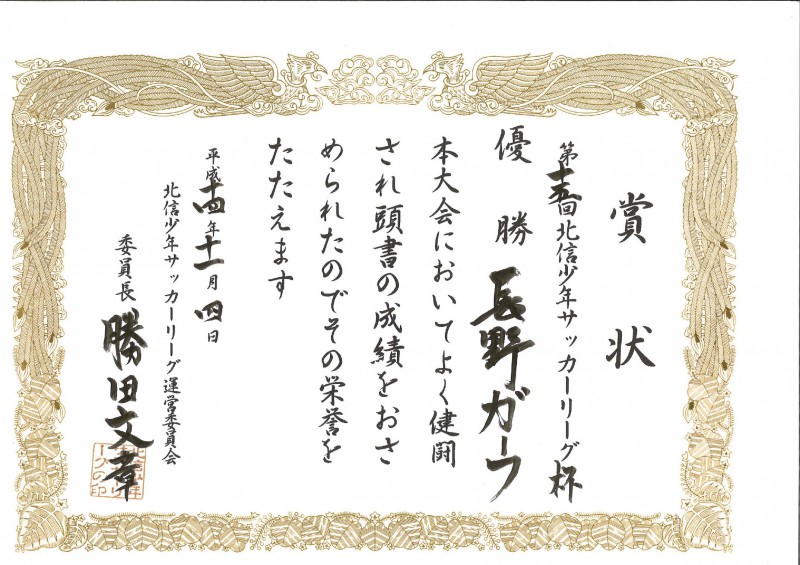 賞状
第十五回北信少年サッカーリーグ杯
優勝 長野ガーフ
本大会においてよく健闘
され頭書の成績をおさ
められたのでその栄誉を
たたえます
平成十四年十一月四日
北信少年サッカーリーグ運営委員会
委員長 勝田文章